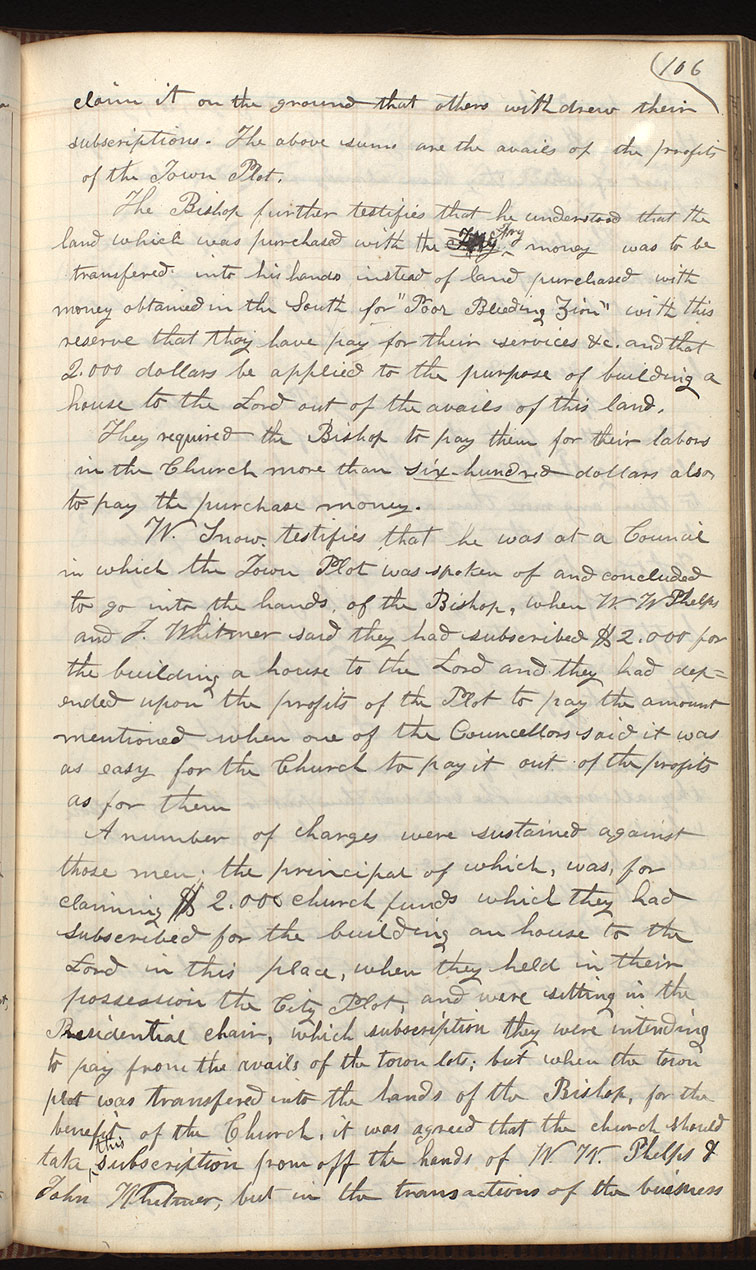 106
claim it on the ground that others withdrew their
subscriptions. The above sums are the avails of the profits
of the Town Plot.
The Bishop further testifies that he understood that the
land which was purchased with the money was to be
transfered into his hands instead of land purchased with
money obtained in the South for "Poor Bleeding Zion" with this
reserve that they have pay for their services &c. and that
2.000 dollars be applied to the purpose of building a
house to the Lord out of the avails of this land.
They required the Bishop to pay them for their labors
in the Church more than six-hundred dollars also,
to pay the purchase money.
W. Snow, testifies that he was at a Council
in which the Town Plot was spoken of and concluded
to go into the hands, of the Bishop, when W W Phelps
and J. Whitmer said they had subscribed $2.000 for
the building a house to the Lord and they had dep=
ended upon the profits of the Plot to pay the amount
mentioned when one of the Councellors said it was
as easy for the Church to pay it out of the profits
as for them
A number of charges were sustained against
those men; the principal of which, was, for
claiming $2.000 church funds which they had
subscribed for the building an house to the
Lord in this place, when they held in their
possession the City Plot, and were sitting in the
Presidential chair, which subscription they were intending
to pay from the avails of the town lots; but when the town
plot was transfered into the hands of the Bishop, for the
benefit of the Church, it was agreed that the church should
take this subscription from off the hands of W. W. Phelps &
John Whitmer, but in the transactions of the buisness